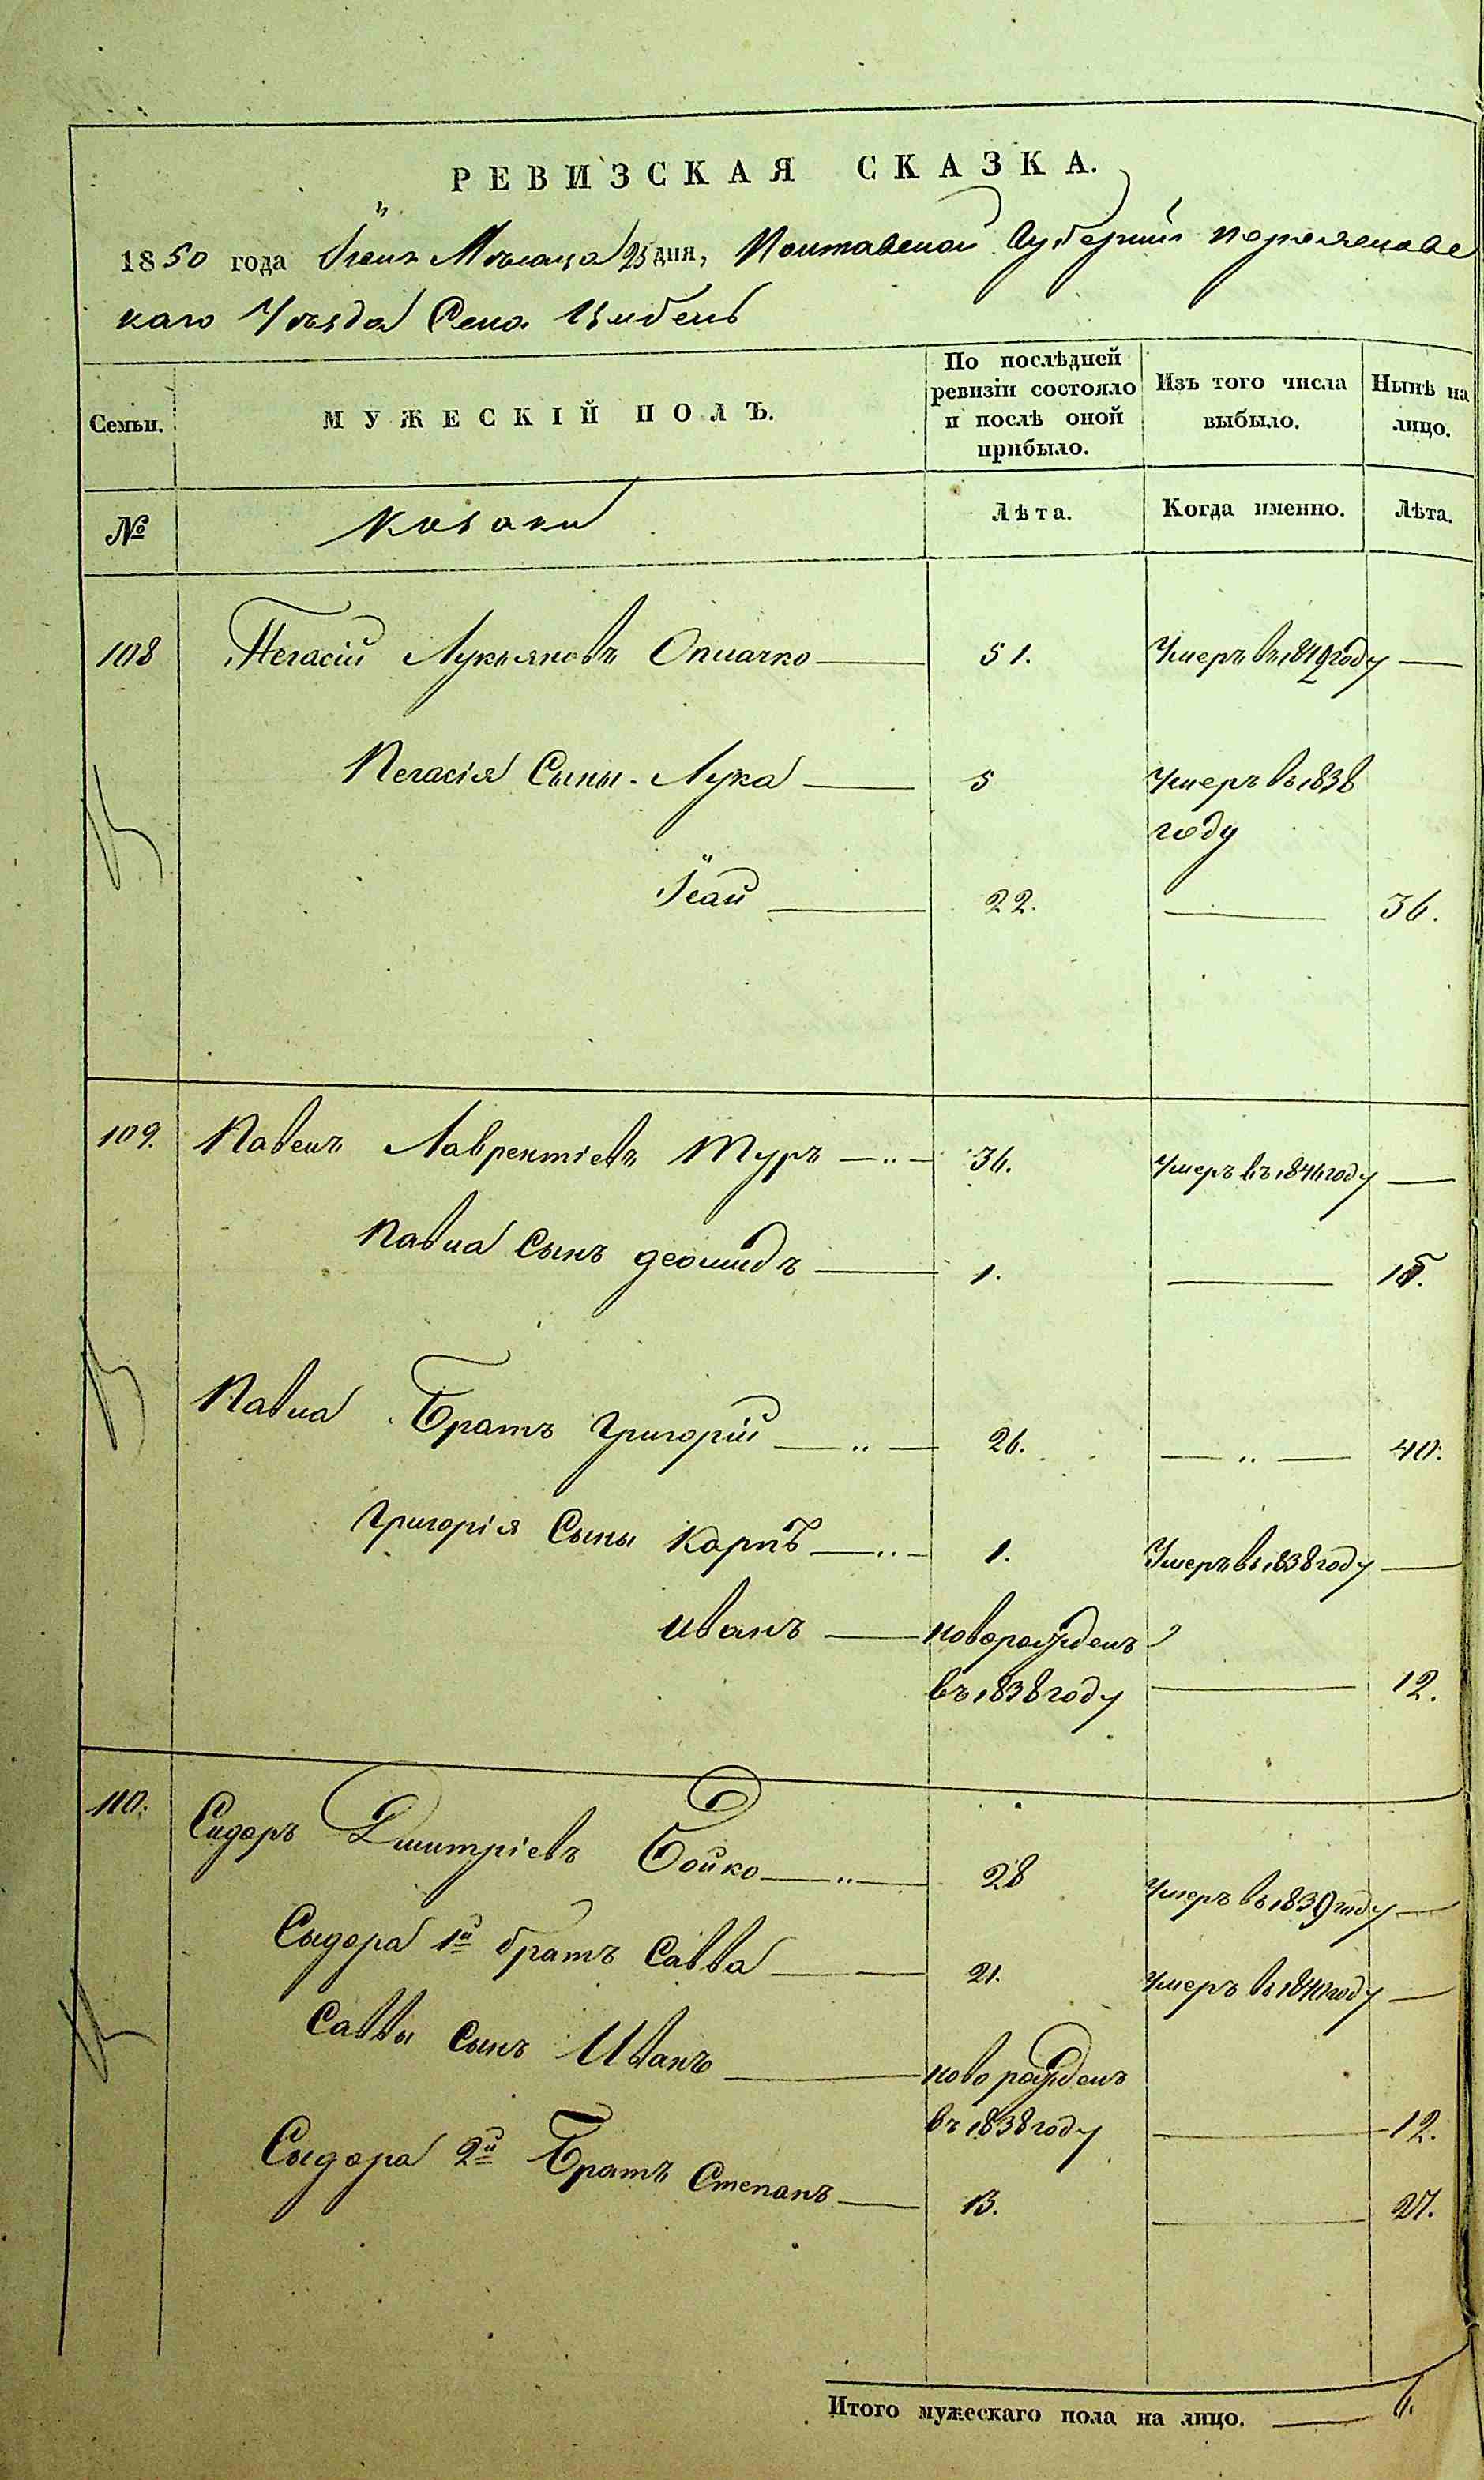 РЕВИЗСКАЯ СКАЗКА.
1850 года Іюня Мѣсяца 25 дня, Полтавской Губерніи Переяславс
каго Уѣзда Села Цибель
Семьи.
МУЖЕСКІЙ ПОЛЪ.
По послѣдней ревизіи состояло и послѣ оной прибыло.
Изъ того числа выбыло.
Нынѣ на лицо.
№ Козаки Лѣта. Когда именно. Лѣта.
108 Пегасій Лукьяновъ Опиачко — 51. Умеръ въ 1849 году —
Пегасія Сыны. Лука — 5 Умеръ въ 1838
году
Ісай — 22. — 36.
109. Павелъ Лаврентіевъ Туръ — 36. Умеръ въ 1846 году —
Павла Сынъ Деомидъ — 1. — 15.
Павла Братъ Григорій — 26. — 40.
Григорія Сыны Карпъ — 1. Умеръ въ 1838 году —
Иванъ — новорожденъ
въ 1838 году — 12.
110. Сидоръ Дмитріевъ Бойко — 28 Умеръ въ 1839 году —
Сыдора 1й братъ Савва — 21. Умеръ въ 1840 году —
Саввы Сынъ Иванъ — ново рожденъ
въ 1838 году — 12.
Сыдора 2й Братъ Степанъ — 13. — 27.
Итого мужескаго пола на лицо. — 6.